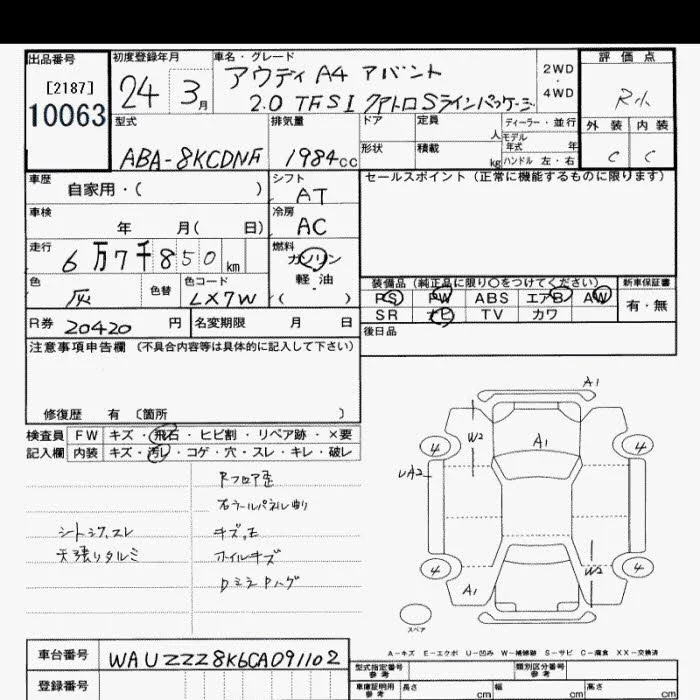 出品番号
[2187]
10063
初度登録年月
24 3月
車名・グレード
アウディ A4 アバント
2.0 TFSI クアトロSラインパッケージ
2WD
・
4WD
評価点
R小
外装 内装
C C
型式
ABA-8KCDNF
排気量
1984cc
ドア
定員
人
形状
積載
kg
ディーラー・並行
モデル年式 年
ハンドル 左・右
車歴
自家用・( )
シフト
AT
セールスポイント(正常に機能するものに限ります)
車検
年 月( 日)
冷房
AC
走行
6万7千850km
燃料
ガソリン
軽・油
( )
色
灰
色替
色コード
LX7W
装備品(純正品に限り○をつけてください)
新車保証書
PS PW ABS エアB AW
有・無
SR ナビ TV カワ
R券 20420 円
名変期限 月 日
後日品
注意事項申告欄(不具合内容等は具体的に記入して下さい)
修復歴 有 〔箇所 〕
検査員
記入欄
FW キズ・飛石・ヒビ割・リペア跡・×要
内装 キズ・汚レ・コゲ・穴・スレ・キレ・破レ
Rフロア歪
右クールパネル削り
シートシワ、スレ
キズ、モ
天張りタルミ
ホイルキズ
DミラーハゲA1
W2
A1
4
4
UA2
4
4
A1
W2
スペア
A-キズ E-エクボ U-凹み W-補修跡 S-サビ C-腐食 XX-交換済
車台番号
WAUZZZ8K6CA091102
登録番号
型式指定番号
参考
類別区分番号
参考
車庫証明用
参考
長さ cm 幅 cm 高さ cm